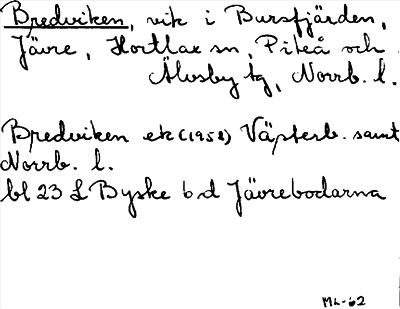 Bredviken, vik i Bursfjärden,
Jävre, Hortlax sn, Piteå och
Älvsby tg, Norrb. l.
Bredviken ek (1958) Västerb. samt
Norrb. l.
bl 23 L Byske b d Jävrebodarna
ML-62